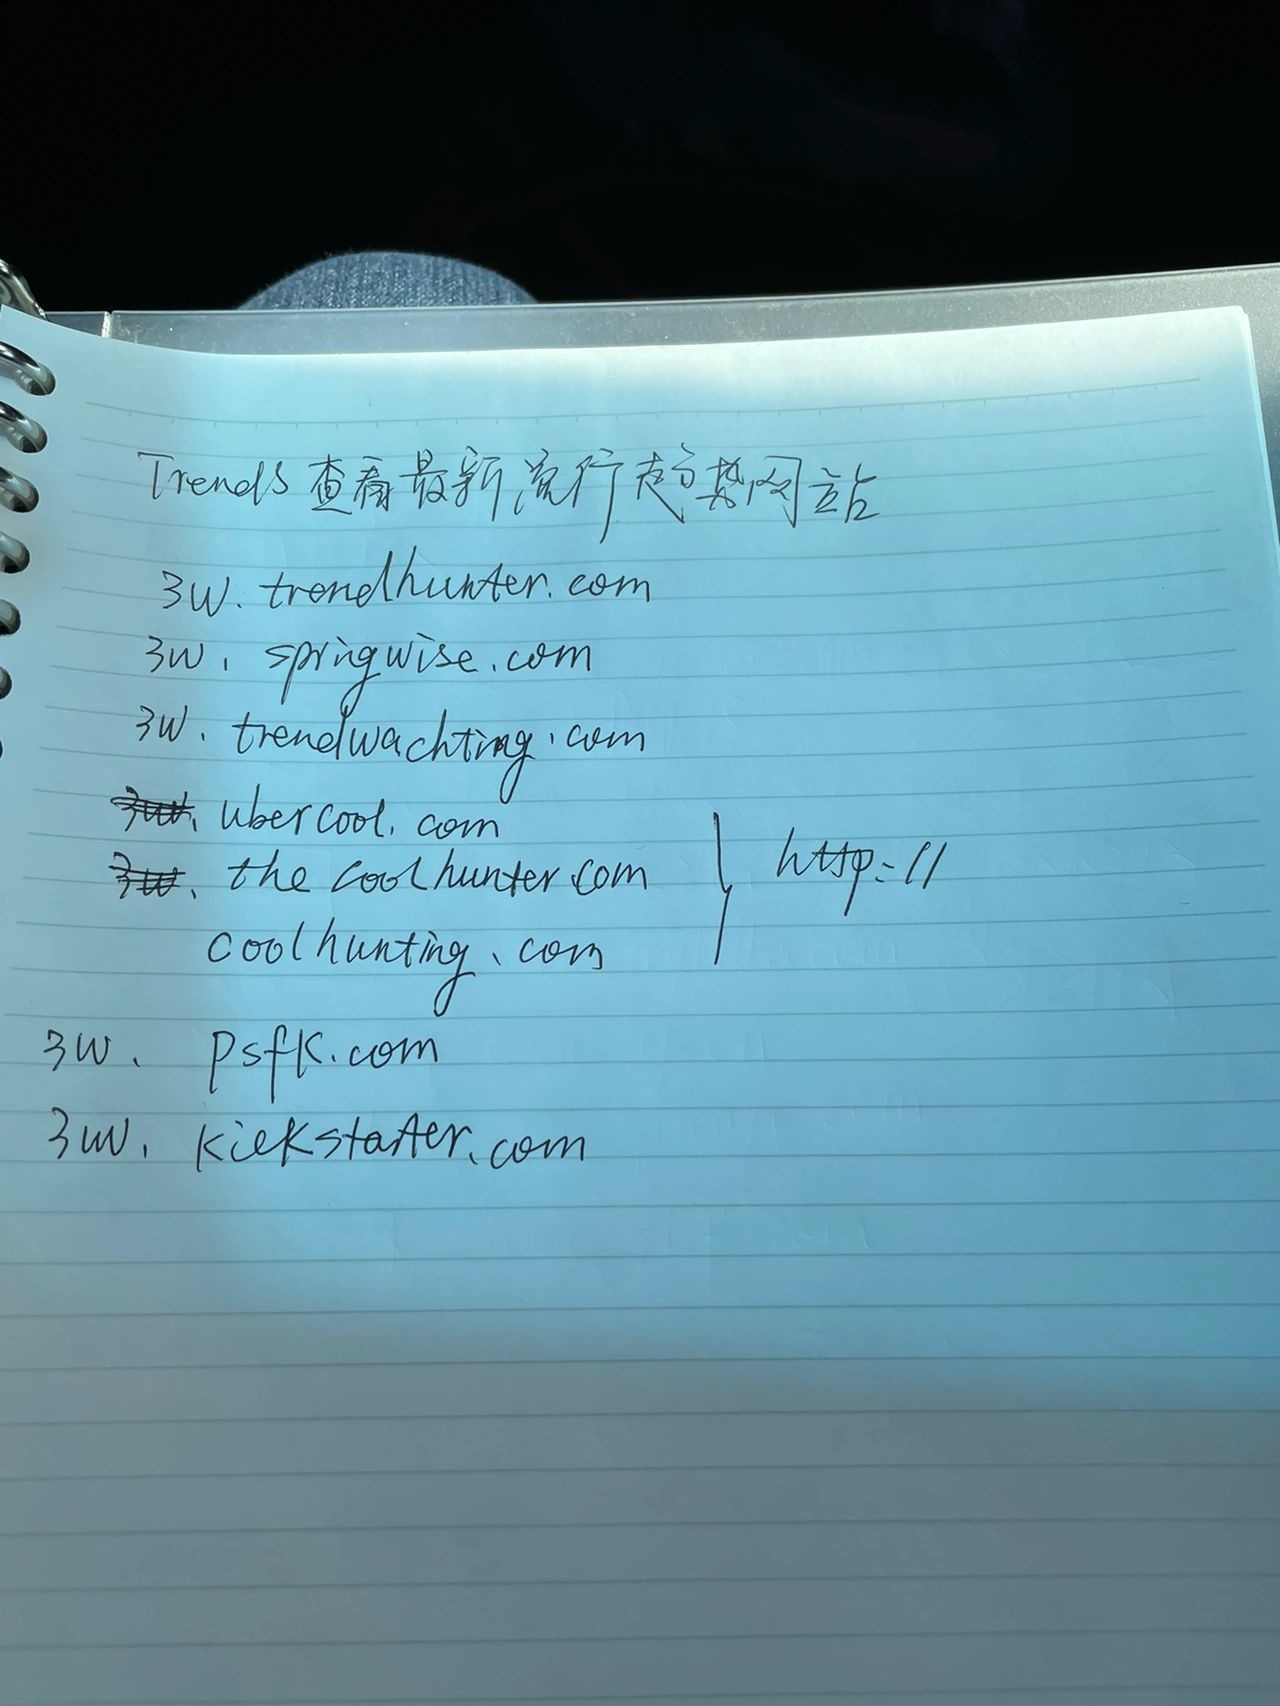 Trends 查看最新流行趋势网站
3W. trendhunter.com
3W. springwise.com
3W. trendwachting.com
ubercool.com
the coolhunter.com
http://
coolhunting.com
3W. psfk.com
3W. kickstarter.com